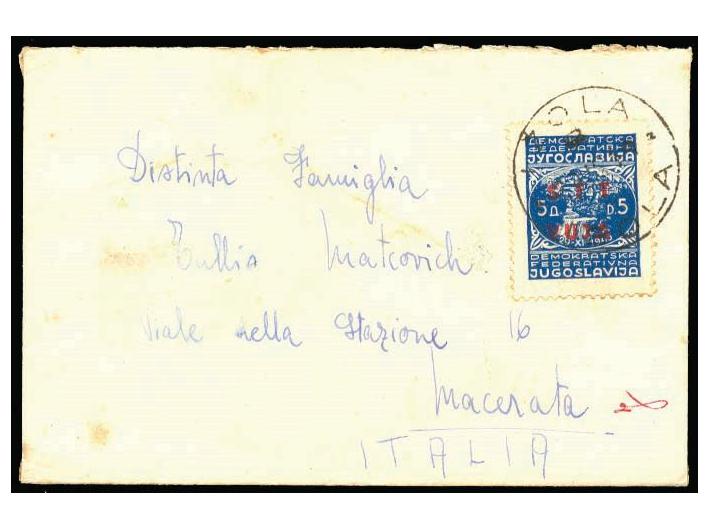 IZOLA
ДЕМОКРАТСКА
ФЕДЕРАТИВНА
ЈУГОСЛАВИЈА
S T T
5Д. D.5
VUJA
29-XI-1943
DEMOKRATSKA
FEDERATIVNA
JUGOSLAVIJA
Distinta Famiglia
Tullio Matcovich
Viale della Stazione 16
Macerata
ITALIA